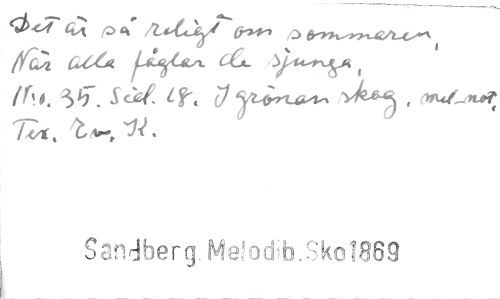 Det är så roligt om sommaren,
När alla fåglar de sjunga,
No. 35. Sid. 18. I grönan skog. mel-not.
Tex. Ev. K.
Sandberg. Melodib. Sko1869